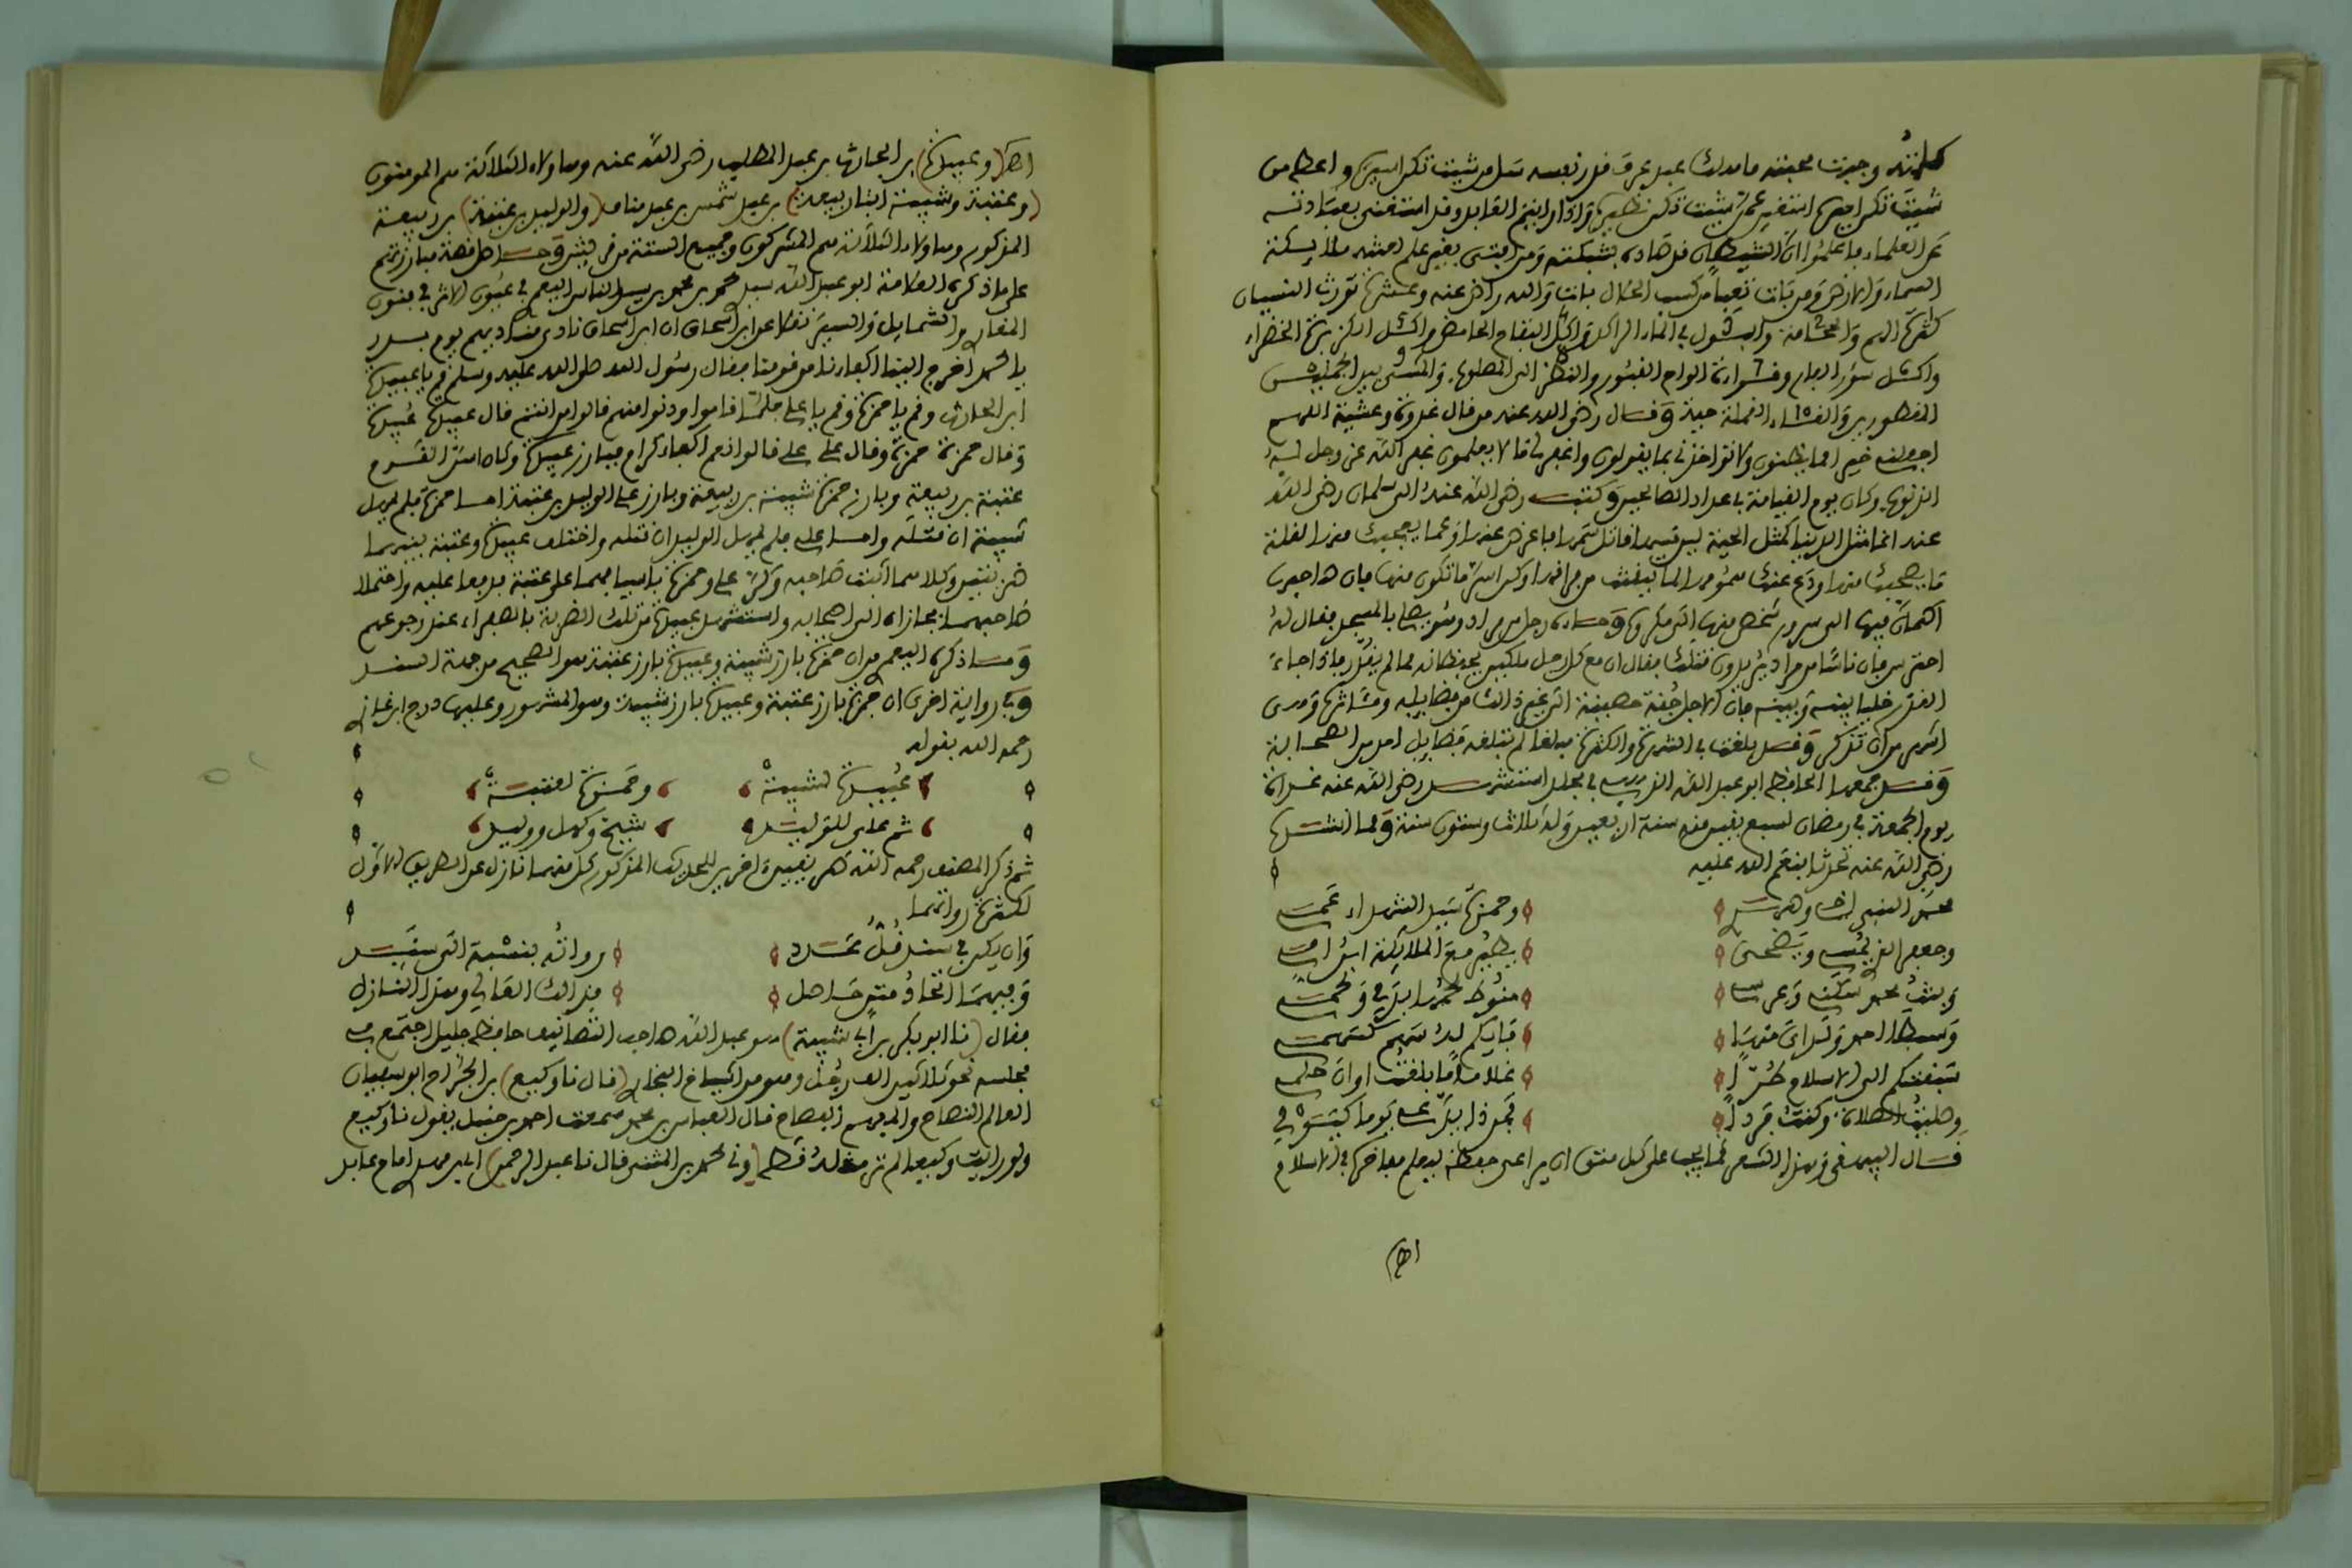 كلمته وجبت محبته ما هلك عبد عرف قدر نفسه سل من شئت تكن اسيره واعط من
شئت تكن اميره استغن عمن شئت تكن نظيره
عن العلماء فاعلموا ان الشيطان قد صاده بشبكته ومن افتى بغير علم لعنته ملائكة
السماء والارض ومن بات تعبا من كسب الحلال بات والله راض عنه وعشرة تورث النسيان
كثرة الهم والحجامة والبول في الماء الراكد واكل التفاح الحامض واكل الكزبرة الخضراء
واكل سؤر الفار وقراءة الواح القبور والنظر الى المصلوب والمشي بين الجملين
المقطورين والقاء القملة حية وقال رضي الله عنه من قال غدوة وعشية اللهم
اجعلني خيرا مما يظنون ولا تؤاخذني بما يقولون واغفر لي ما لا يعلمون غفر الله عز وجل له
الذنوب وكان يوم القيامة في عداد الصالحين وكتب رضي الله عنه الى سلمان رضي الله
عنه انما مثل الدنيا كمثل الحية لين مسها قاتل سمها فاعرض عنها وعما يعجبك منها لقلة
ما يصحبك منها ودع عنك همومها لما تيقنت من فراقها وكن اسر ما تكون منها فان صاحبها
اطمأن فيها الى سرور شخص منها الى مكروه وجاءه رجل من مراد وهو يصلي بالمسجد فقال له
احترس فان ناسا من مراد يريدون قتلك فقال ان مع كل رجل ملكين يحفظانه مما لم يقدر فاذا جاء
القدر خليا بينه وبينه فان الاجل جنة حصينة الى غير ذلك من فضايله ومآثره وهي
اكثر من ان تذكر وقد بلغت في الشهرة والكثرة مبلغا لم تبلغه فضايل احد من الصحابة
وقد جمعها الحافظ ابو عبد الله الذهبي في مجلد استشهد رضي الله عنه غداة
يوم الجمعة في رمضان لسبع بقين منه سنة اربعين وله ثلاث وستون سنة ومما انشده
رضي الله عنه تحدثا بنعم الله عليه
محمد النبي اخي وصهري وحمزة سيد الشهداء عمي
وجعفر الذي يمسي ويضحى يطير مع الملائكة ابن امي
وبنت محمد سكني وعرسي منوط لحمها بدمي ولحمي
وسبطا احمد ولداي منها فايكم له سهم كسهمي
سبقتكم الى الاسلام طرا غلاما ما بلغت اوان حلمي
وصليت الصلاة وكنت فردا
قال البيهقي وهذا الشعر مما يجب على كل متوان في علي حفظه ليعلم مفاخره في الاسلام
اهـ
اهـ (وعبيدة) بن الحارث بن عبد المطلب رضي الله عنه وهاولاء الثلاثة هم المومنون
(وعتبة وشيبة ابنا ربيعة) بن عبد شمس بن عبد مناف (والوليد بن عتبة) بن ربيعة
المذكور وهاولاء الثلاثة هم المشركون وجميع الستة من قريش وحاصل قصة مبارزتهم
على ما ذكره العلامة ابو عبد الله سيدي محمد بن محمد بن سيد الناس اليعمري في عيون الاثر في فنون
المغازي والشمايل والسير نقلا عن ابن اسحاق ان ابن اسحاق نادى مناديهم يوم بدر
يا محمد اخرج الينا اكفاءنا من قومنا فقال رسول الله صلى الله عليه وسلم قم يا عبيدة
ابن الحارث وقم يا حمزة وقم يا علي فلما قاموا ودنوا منهم قالوا من انتم قال عبيدة عبيدة
وقال حمزة حمزة وقال علي علي قالوا نعم اكفاء كرام فبارز عبيدة وكان اسن القوم
عتبة بن ربيعة وبارز حمزة شيبة بن ربيعة وبارز علي الوليد بن عتبة اما حمزة فلم يمهل
شيبة ان قتله واما علي فلم يمهل الوليد ان قتله واختلف عبيدة وعتبة بينهما
ضربتين وكلاهما اثبت صاحبه وكر علي وحمزة باسيافهما على عتبة فدففا عليه واحتملا
صاحبهما فحازاه الى اصحابه واستشهد عبيدة من تلك الضربة بالصفراء عند رجوعهم
وما ذكره اليعمري من ان حمزة بارز شيبة وعبيدة بارز عتبة هو الصحيح من جهة السند
وفي رواية اخرى ان حمزة بارز عتبة وعبيدة بارز شيبة وهو المشهور وعليها درج ابن غازي
رحمه الله بقوله
عبيدة لشيبة وحمزة لعتبة
ثم علي للوليد شيخ وكهل ووليد
ثم ذكر المصنف رحمه الله طريقين اخريين للحديث المذكور كل منهما نازل عن الطريق الاول
لكثرة رواتهما
وان يكن في سند قل عدد رواته بنسبة الى سند
وفيهما اتحاد متن حاصل فذلك العالي وهذا النازل
فقال (نا ابو بكر بن ابي شيبة) هو عبد الله صاحب التصانيف حافظ جليل اجتمع في
مجلسه نحو ثلاثين الف رجل وهو من اشياخ البخاري (قال نا وكيع) بن الجراح ابو سفيان
العالم النصاح والمدره الفصاح قال العباس بن محمد سمعت احمد بن حنبل يقول نا وكيع
ولو رايت وكيعا لم تر مثله قط (ونا محمد بن المثنى قال نا عبد الرحمن) ابن مهدي امام عابد